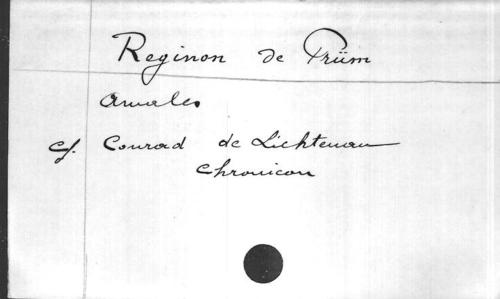 Reginon de Prüm
Annales
cf. Conrad de Lichtenau
Chronicon